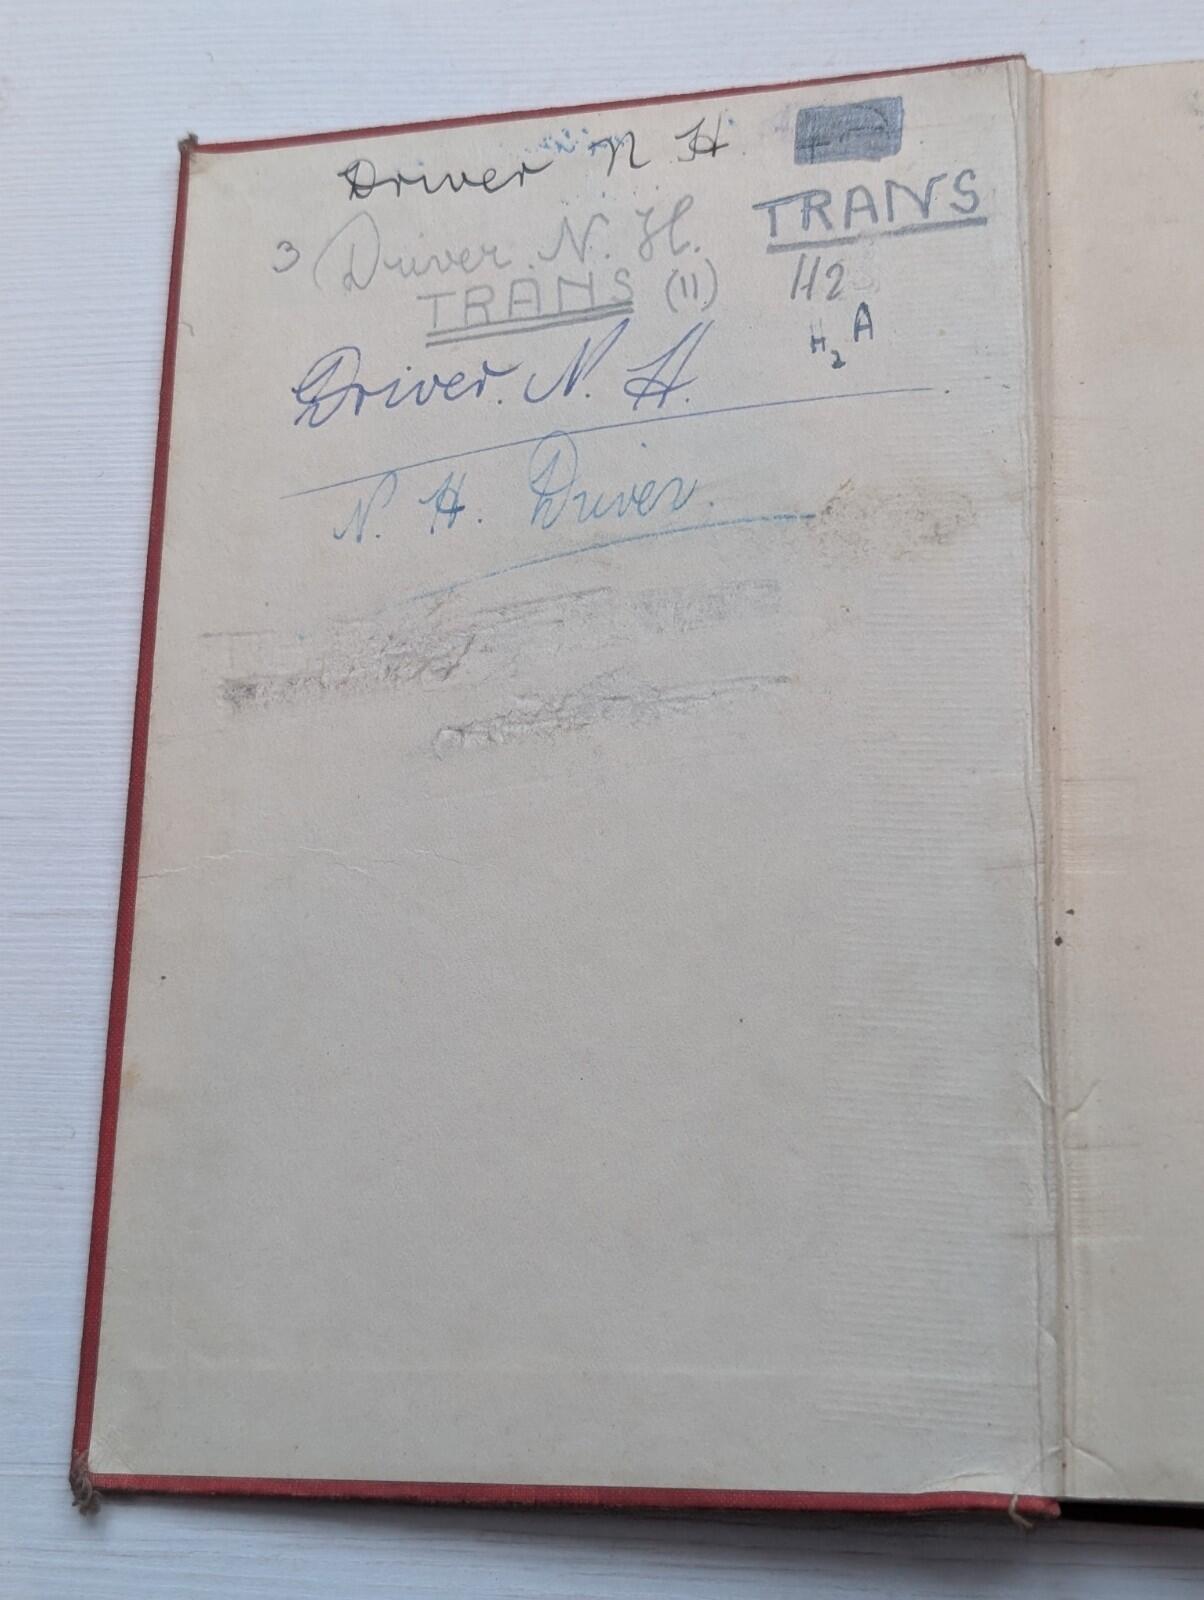 Driver N H
TRANS
3 Driver. N. H.
H2
TRANS (II)
H2A
Driver. N. H.
N. H. Driver.